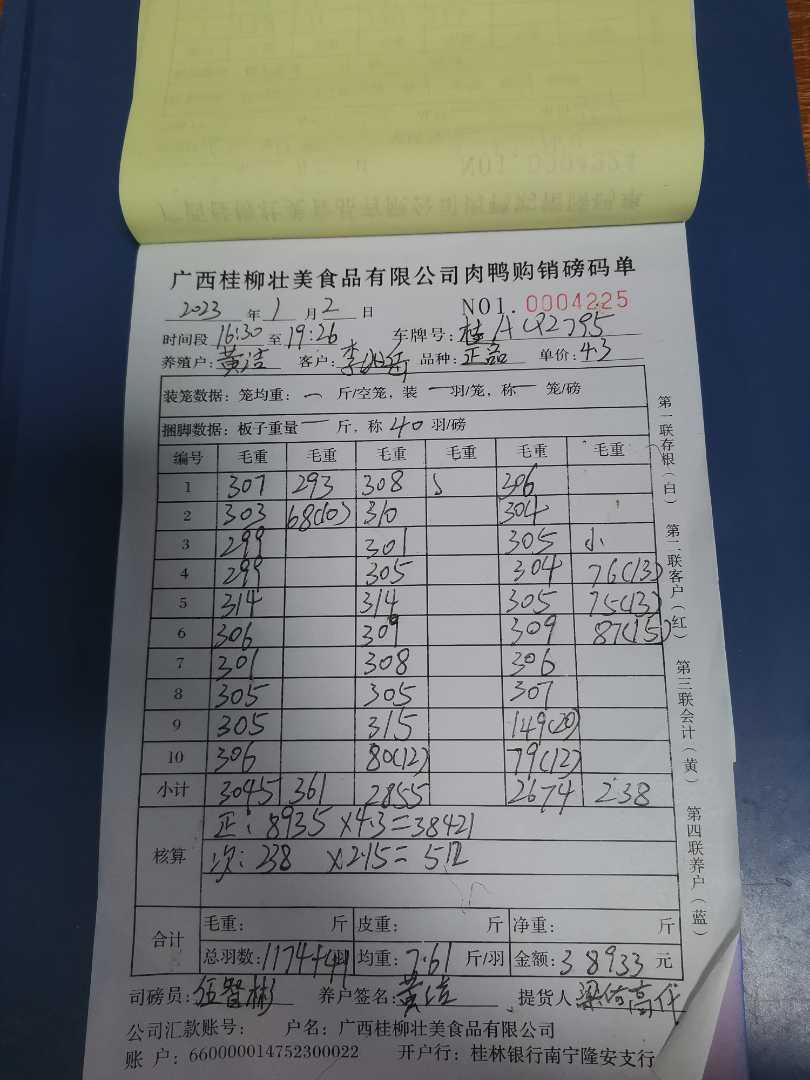 广西桂柳壮美食品有限公司肉鸭购销磅码单
2023年1月2日 NO1.0004225
时间段16:30至19:26 车牌号:桂ACP2795
养殖户:黄洁 客户:李 品种:正品 单价:4.3
装笼数据:笼均重:一斤/空笼,装一羽/笼,称一笼/磅
捆脚数据:板子重量一斤,称40羽/磅
编号 毛重 毛重 毛重 毛重 毛重 毛重
1 307 293 308 306
2 303 68(10) 310 304
3 299 301 305 小
4 299 305 304 76(13)
5 314 314 305 75(13)
6 306 309 309 87(15)
7 301 308 306
8 305 305 307
9 305 315 149(20)
10 306 80(12) 79(12)
小计 3045 361 2855 2674 238
核算 正:8935×4.3=38421
次:238×2.15=512
合计 毛重: 斤 皮重: 斤 净重: 斤
总羽数:1174+41羽 均重:7.61斤/羽 金额:38933元
司磅员:伍智彬 养户签名:黄洁 提货人
公司汇款账号: 户名:广西桂柳壮美食品有限公司
账 户:660000014752300022 开户行:桂林银行南宁隆安支行
第一联存根(白) 第二联客户(红) 第三联会计(黄) 第四联养户(蓝)